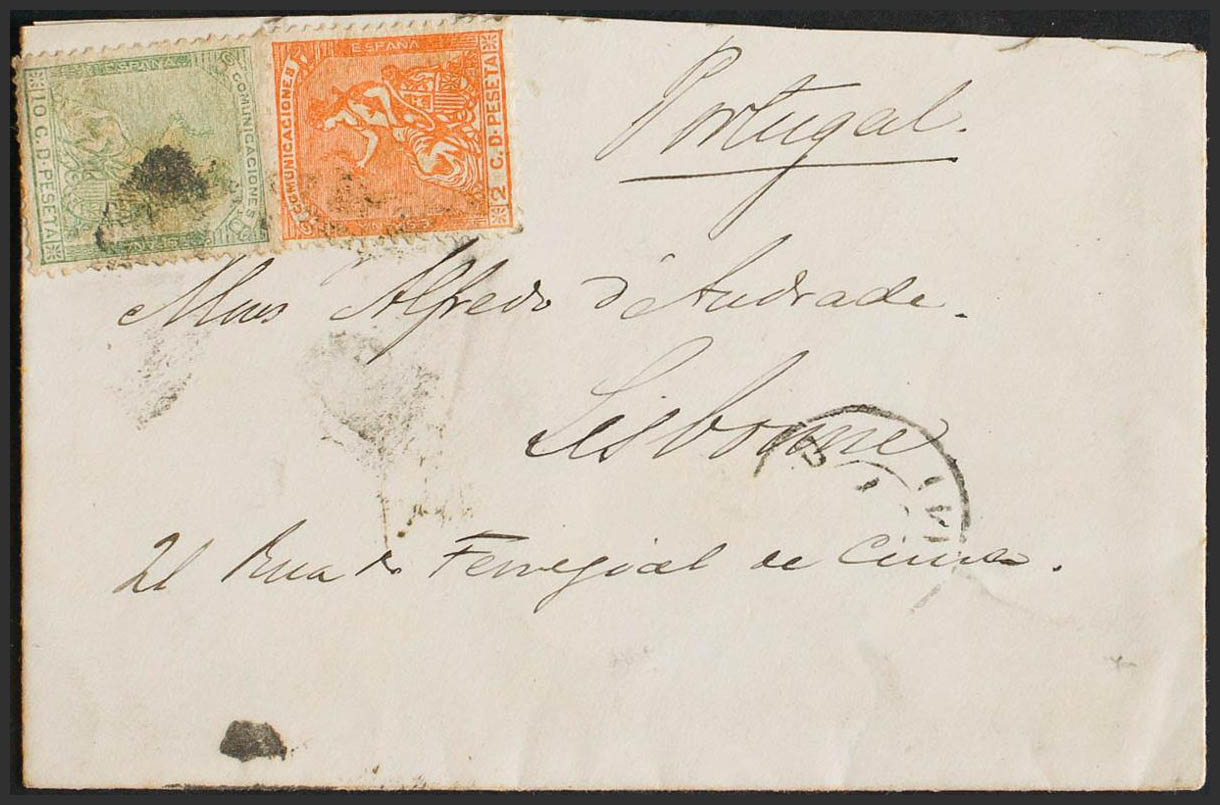 ESPAÑA
COMUNICACIONES
10 C. D. PESETA
ESPAÑA
COMUNICACIONES
2 C. D. PESETA
Portugal.
Alfredo d'Andrade.
Lisbonne.
21 Rua do Ferregial de Cima.